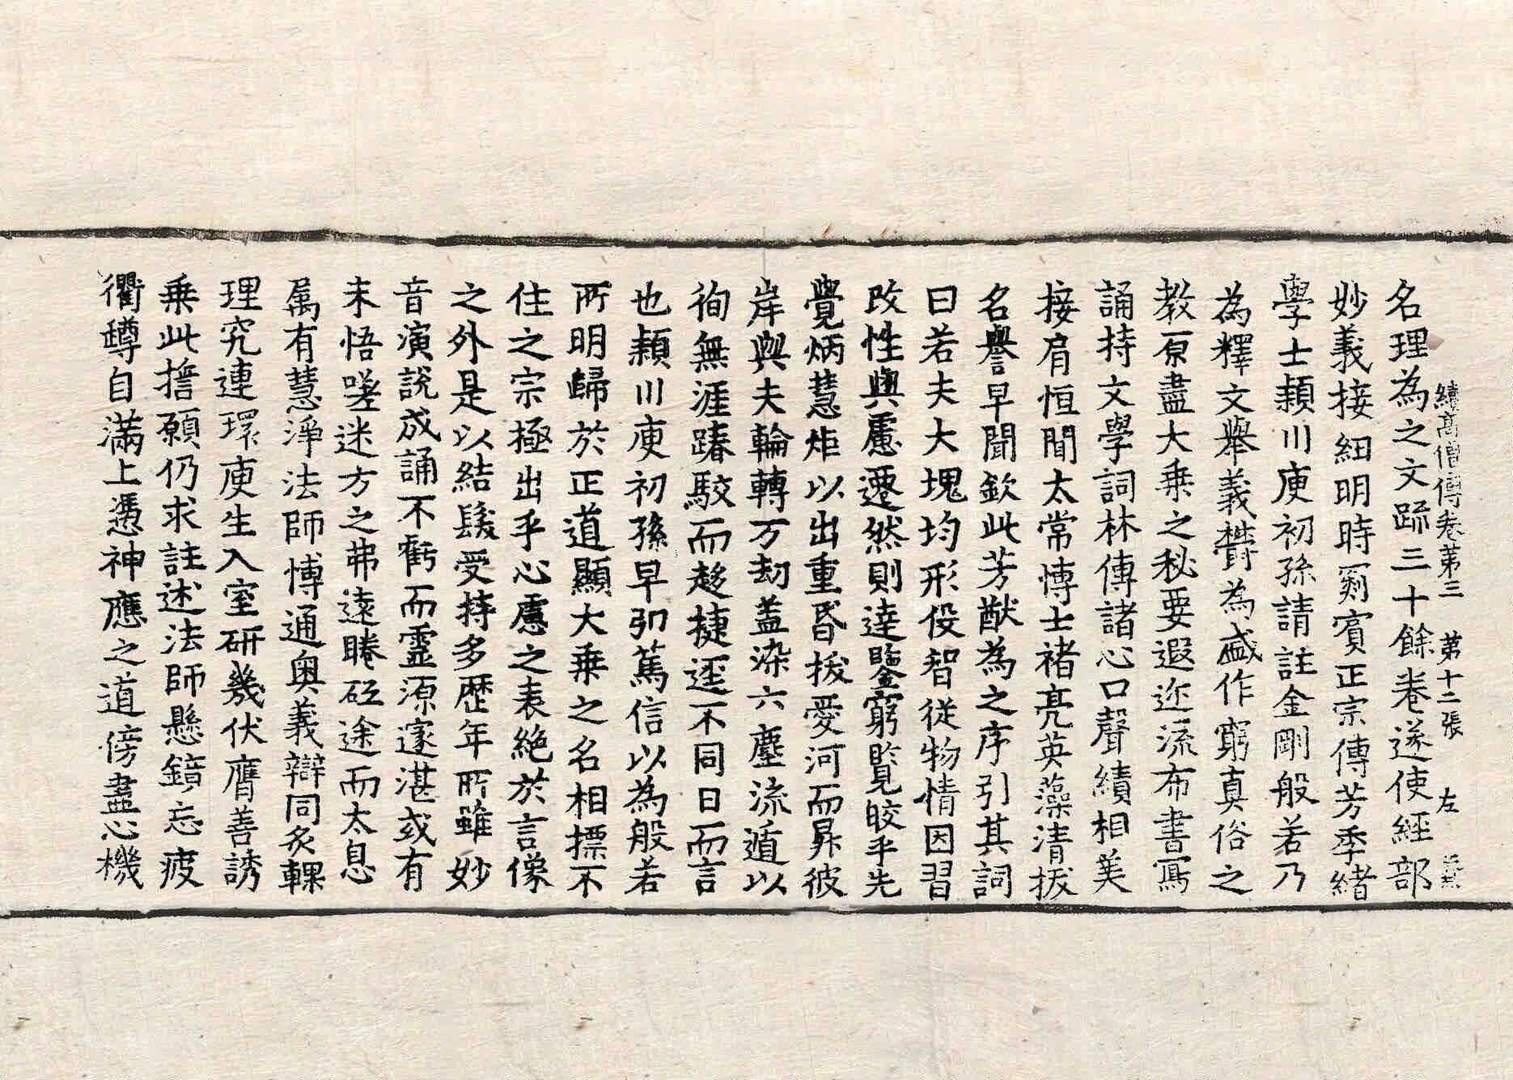 續高僧傳卷第三 第十二張 左
名理為之文䟽三十餘卷遂使經部
妙義接紐明時罽賓正宗傳芳季緒
學士頴川庾初孫請註金剛般若乃
為釋文舉義欝為盛作窮真俗之
教原盡大乘之秘要遐迩流布書寫
誦持文學詞林傳諸心口聲績相美
接肩恒聞太常愽士褚亮英藻清拔
名譽早聞欽此芳猷為之序引其詞
曰若夫大塊均形役智從物情因習
改性與慮遷然則達鑒窮覽皎乎先
覺炳慧炬以出重昏拔愛河而昇彼
岸與夫輪轉万劫盖染六塵流遁以
徇無涯踳駮而趍捷逕不同日而言
也頴川庾初孫早弘篤信以為般若
所明歸於正道顯大乘之名相摽不
住之宗極出乎心慮之表絕於言像
之外是以結髮受持多歷年所雖妙
音演說成誦不虧而靈源邃湛或有
未悟嗟迷方之弗遠睠砥途而太息
属有慧淨法師愽通奥義辯同炙輠
理究連環庾生入室研幾伏膺善誘
乗此擔願仍求註述法師懸鏡忘疲
衢罇自滿上憑神應之道傍盡心機